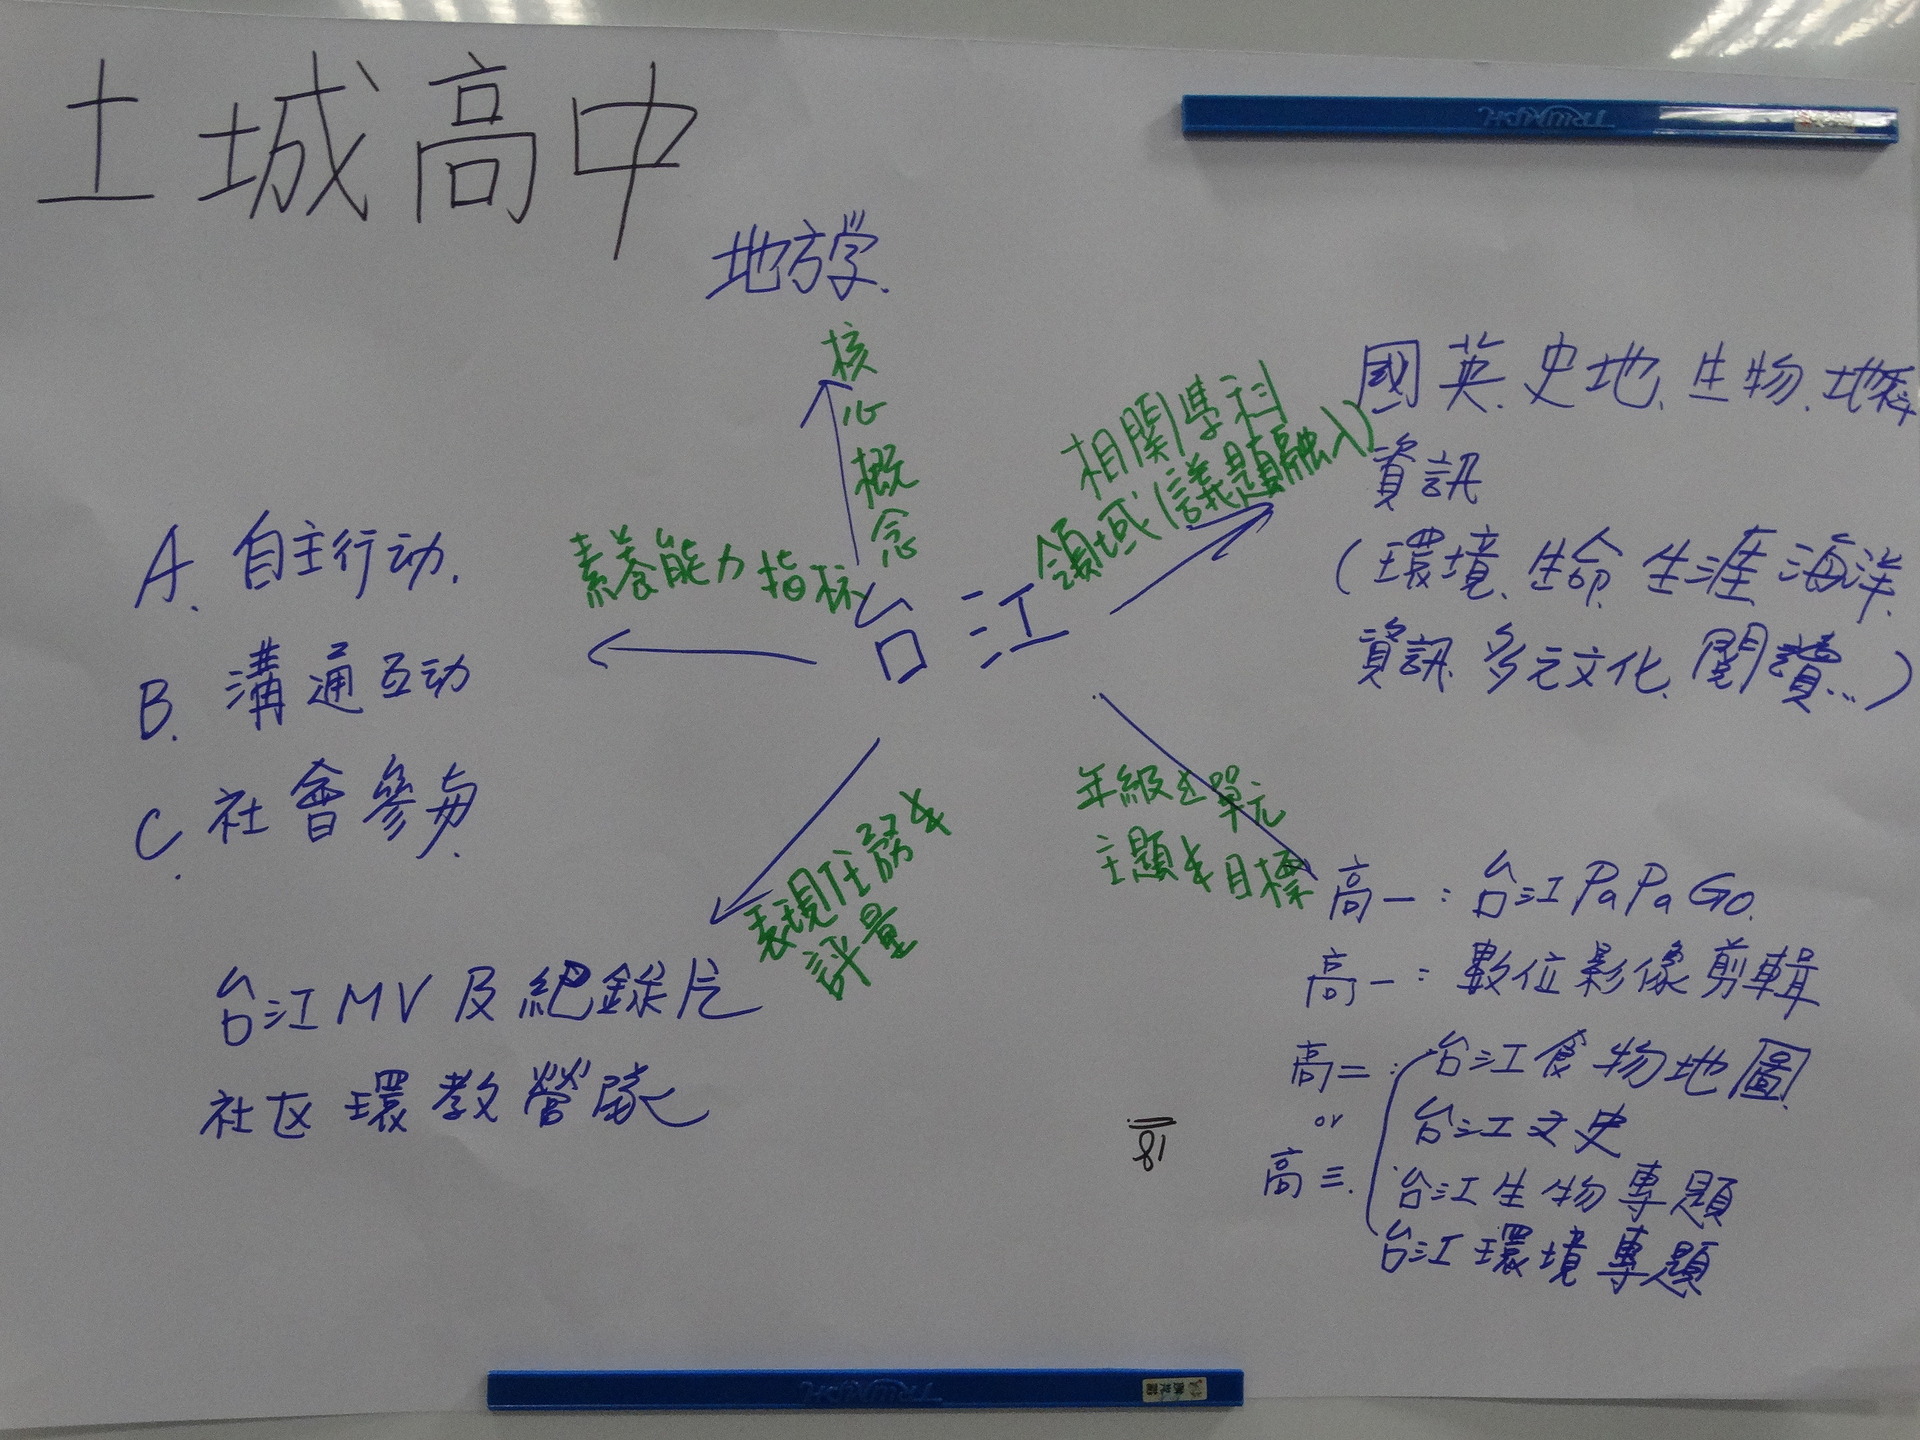 土城高中
TRIUMPH
地方学.
核心概念
相關學科
領域(議題融入)
國英.史地.生物.地科
資訊
(環境.生命.生涯.海洋.
資訊.多元文化.閱讀...)
素養能力指标
A.自主行动.
B.溝通互动
C.社會參与.
台江
年級与單元
主題与目標
高一:台江PaPaGo.
高一:數位影像剪輯
高二:台江食物地圖
or
台江文史
高三.
台江生物專題
台江環境專題
表現任務与
評量
台江MV及紀錄片
社区環教營隊
18
TRIUMPH